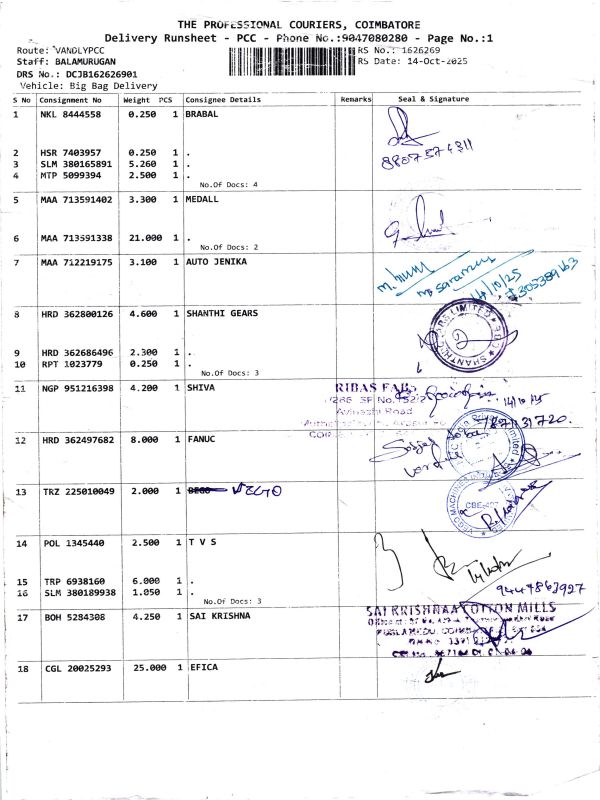 THE PROFESSIONAL COURIERS, COIMBATORE
Delivery Runsheet - PCC - Phone No.:9047080280 - Page No.:1
Route: VANDLYPCC RS No.: 1626269
Staff: BALAMURUGAN RS Date: 14-Oct-2025
DRS No.: DCJB162626901
Vehicle: Big Bag Delivery
S No Consignment No Weight PCS Consignee Details Remarks Seal & Signature
1 NKL 8444558 0.250 1 BRABAL
2 HSR 7403957 0.250 1 .
3 SLM 380165891 5.260 1 .
4 MTP 5099394 2.500 1 .
No.Of Docs: 4
5 MAA 713591402 3.300 1 MEDALL
6 MAA 713591338 21.000 1 .
No.Of Docs: 2
7 MAA 712219175 3.100 1 AUTO JENIKA
14/10/25
8 HRD 362800126 4.600 1 SHANTHI GEARS
9 HRD 362686496 2.300 1 .
10 RPT 1023779 0.250 1 .
No.Of Docs: 3
11 NGP 951216398 4.200 1 SHIVA
RIBAS FABS
Avinashi Road
12 HRD 362497682 8.000 1 FANUC
13 TRZ 225010049 2.000 1 VEGO
14 POL 1345440 2.500 1 T V S
15 TRP 6938160 6.000 1 .
16 SLM 380189938 1.050 1 .
No.Of Docs: 3
9447863927
17 BOH 5284308 4.250 1 SAI KRISHNA
SAI KRISHNAA COTTON MILLS
18 CGL 20025293 25.000 1 EFICA